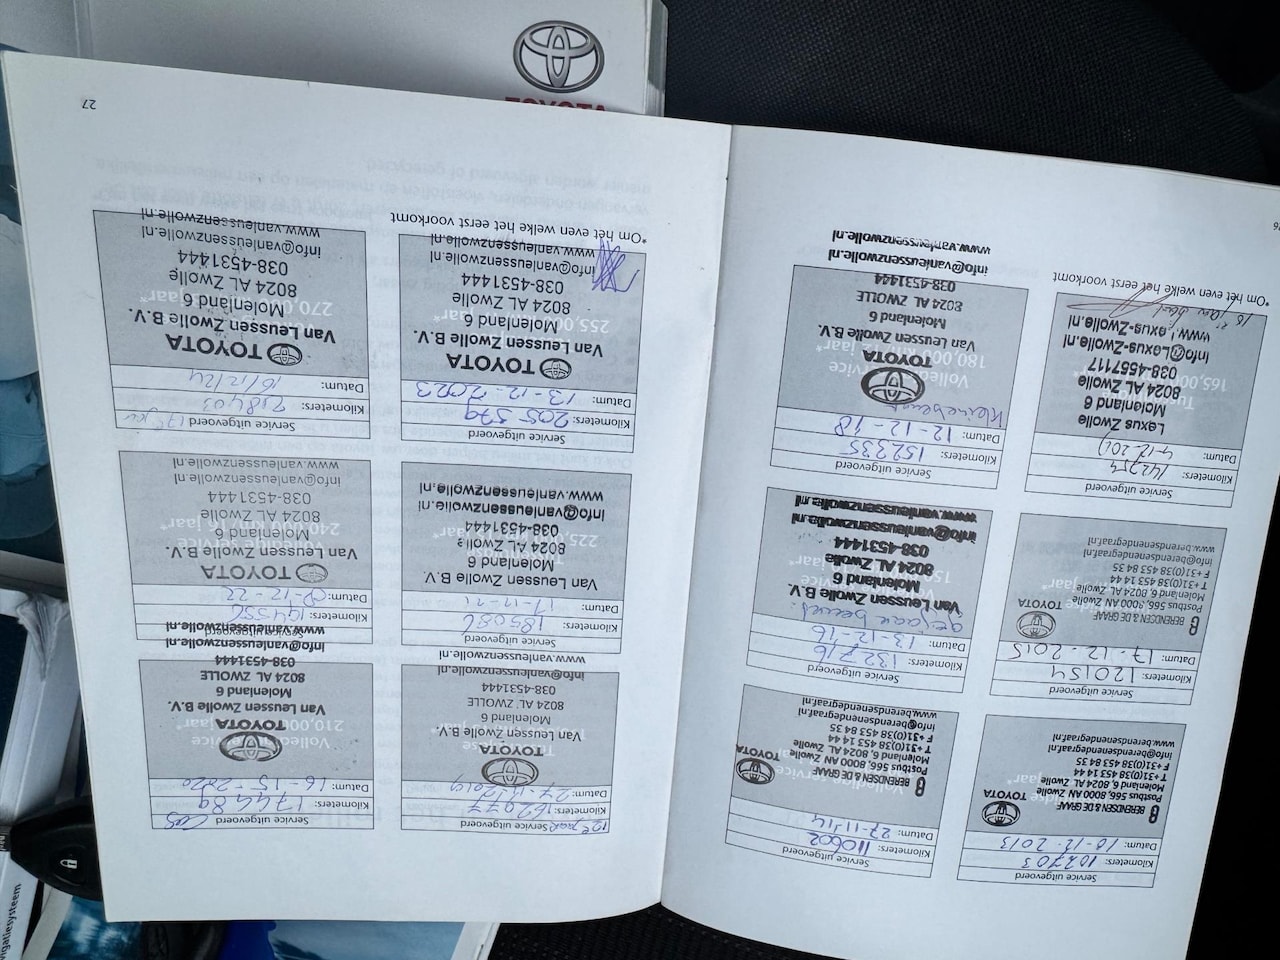 Service uitgevoerd
Kilometers: 102703
Datum: 10-12-2013
BERENDSEN & DE GRAAF
TOYOTA
Postbus 566, 8000 AN Zwolle
Molenland 6, 8024 AL Zwolle
T +31(0)38 453 14 44
F +31(0)38 453 84 35
info@berendsenendegraaf.nl
www.berendsenendegraaf.nl
Service uitgevoerd
Kilometers: 110602
Datum: 27-11-'14
BERENDSEN & DE GRAAF
TOYOTA
Postbus 566, 8000 AN Zwolle
Molenland 6, 8024 AL Zwolle
T +31(0)38 453 14 44
F +31(0)38 453 84 35
info@berendsenendegraaf.nl
www.berendsenendegraaf.nl
Service uitgevoerd
Kilometers: 120154
Datum: 17-12-2015
BERENDSEN & DE GRAAF
TOYOTA
Postbus 566, 8000 AN Zwolle
Molenland 6, 8024 AL Zwolle
T +31(0)38 453 14 44
F +31(0)38 453 84 35
info@berendsenendegraaf.nl
www.berendsenendegraaf.nl
Service uitgevoerd
Kilometers: 132716
Datum: 13-12-16
Van Leussen Zwolle B.V.
Molenland 6
8024 AL Zwolle
038-4531444
info@vanleussenzwolle.nl
www.vanleussenzwolle.nl
Service uitgevoerd
Kilometers:
Datum:
Lexus Zwolle
Molenland 6
8024 AL Zwolle
038-4557117
Info@Lexus-Zwolle.nl
www.Lexus-Zwolle.nl
165,000
*Om het even welke het eerst voorkomt
Service uitgevoerd
Kilometers: 152335
Datum: 12-12-18
Kleine beurt
TOYOTA
Van Leussen Zwolle B.V.
Molenland 6
8024 AL ZWOLLE
038-4531444
info@vanleussenzwolle.nl
www.vanleussenzwolle.nl
Service uitgevoerd
Kilometers: 162077
Datum:
TOYOTA
Van Leussen Zwolle B.V.
Molenland 6
8024 AL ZWOLLE
038-4531444
info@vanleussenzwolle.nl
www.vanleussenzwolle.nl
Service uitgevoerd
Kilometers: 174489
Datum: 16-15-2020
TOYOTA
Van Leussen Zwolle B.V.
Molenland 6
8024 AL ZWOLLE
038-4531444
info@vanleussenzwolle.nl
www.vanleussenzwolle.nl
Service uitgevoerd
Kilometers: 185086
Datum: 17-12-21
Van Leussen Zwolle B.V.
Molenland 6
8024 AL Zwolle
038-4531444
info@vanleussenzwolle.nl
www.vanleussenzwolle.nl
Service uitgevoerd
Kilometers: 194550
Datum:
TOYOTA
Van Leussen Zwolle B.V.
Molenland 6
8024 AL Zwolle
038-4531444
info@vanleussenzwolle.nl
www.vanleussenzwolle.nl
Service uitgevoerd
Kilometers: 205579
Datum: 13-12-2023
TOYOTA
Van Leussen Zwolle B.V.
Molenland 6
8024 AL Zwolle
038-4531444
info@vanleussenzwolle.nl
www.vanleussenzwolle.nl
*Om het even welke het eerst voorkomt
Service uitgevoerd
Kilometers: 218403
Datum: 16/12/24
TOYOTA
Van Leussen Zwolle B.V.
Molenland 6
8024 AL Zwolle
038-4531444
info@vanleussenzwolle.nl
www.vanleussenzwolle.nl
27
TOYOTA